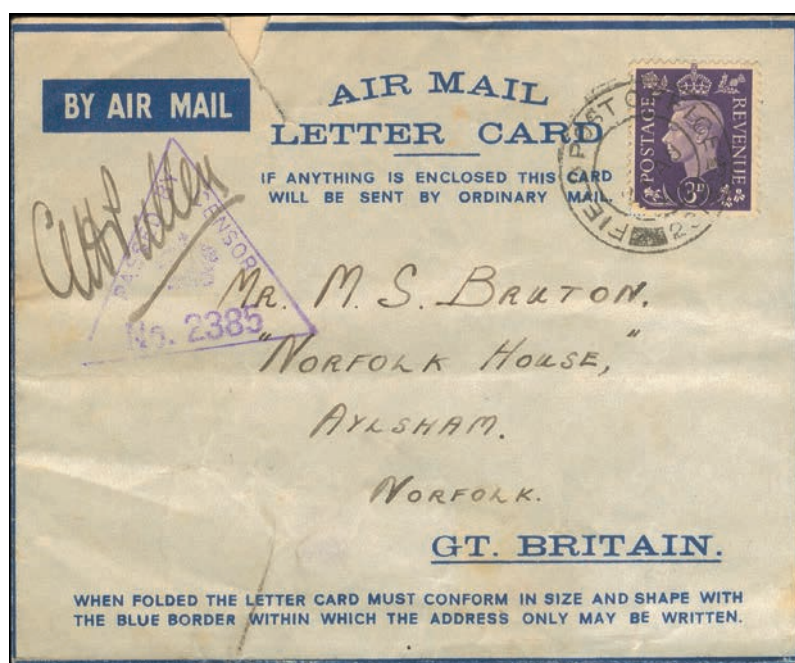 BY AIR MAIL
AIR MAIL
LETTER CARD
IF ANYTHING IS ENCLOSED THIS CARD
WILL BE SENT BY ORDINARY MAIL.
POSTAGE
REVENUE
3D
FIELD POST OFFICE
PASSED BY
CENSOR
No. 2385
MR. M. S. BRUTON.
"NORFOLK HOUSE,"
AYLSHAM.
NORFOLK.
GT. BRITAIN.
WHEN FOLDED THE LETTER CARD MUST CONFORM IN SIZE AND SHAPE WITH
THE BLUE BORDER WITHIN WHICH THE ADDRESS ONLY MAY BE WRITTEN.